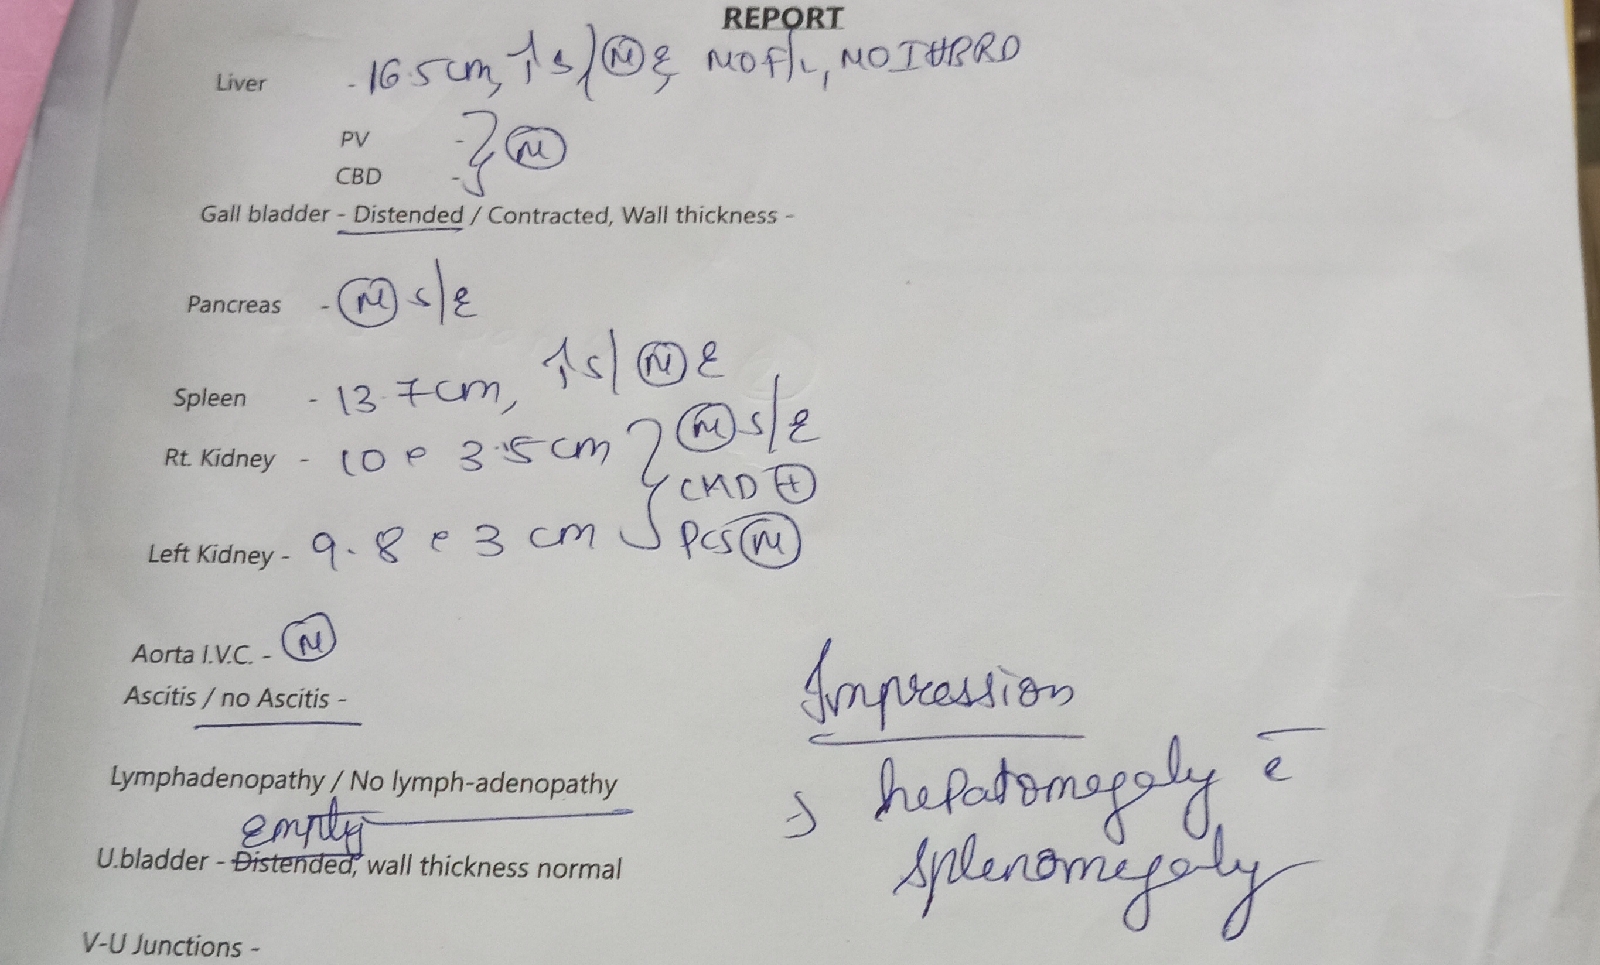 REPORT
Liver - 16.5cm, ↑s/Ⓝ ε NO F/L, NO IHBRD
PV -
CBD - } Ⓝ
Gall bladder - Distended / Contracted, Wall thickness -
Pancreas - Ⓝ s/ε
Spleen - 13.7cm, ↑s/Ⓝ ε
Rt. Kidney - 10 e 3.5 cm } Ⓝ s/ε
CMD ⊕
Left Kidney - 9.8 e 3 cm PCS Ⓝ
Aorta I.V.C. - Ⓝ
Ascitis / no Ascitis -
Impression
Lymphadenopathy / No lymph-adenopathy
hepatomegaly c̄
empty
U.bladder - Distended, wall thickness normal
splenomegaly
V-U Junctions -